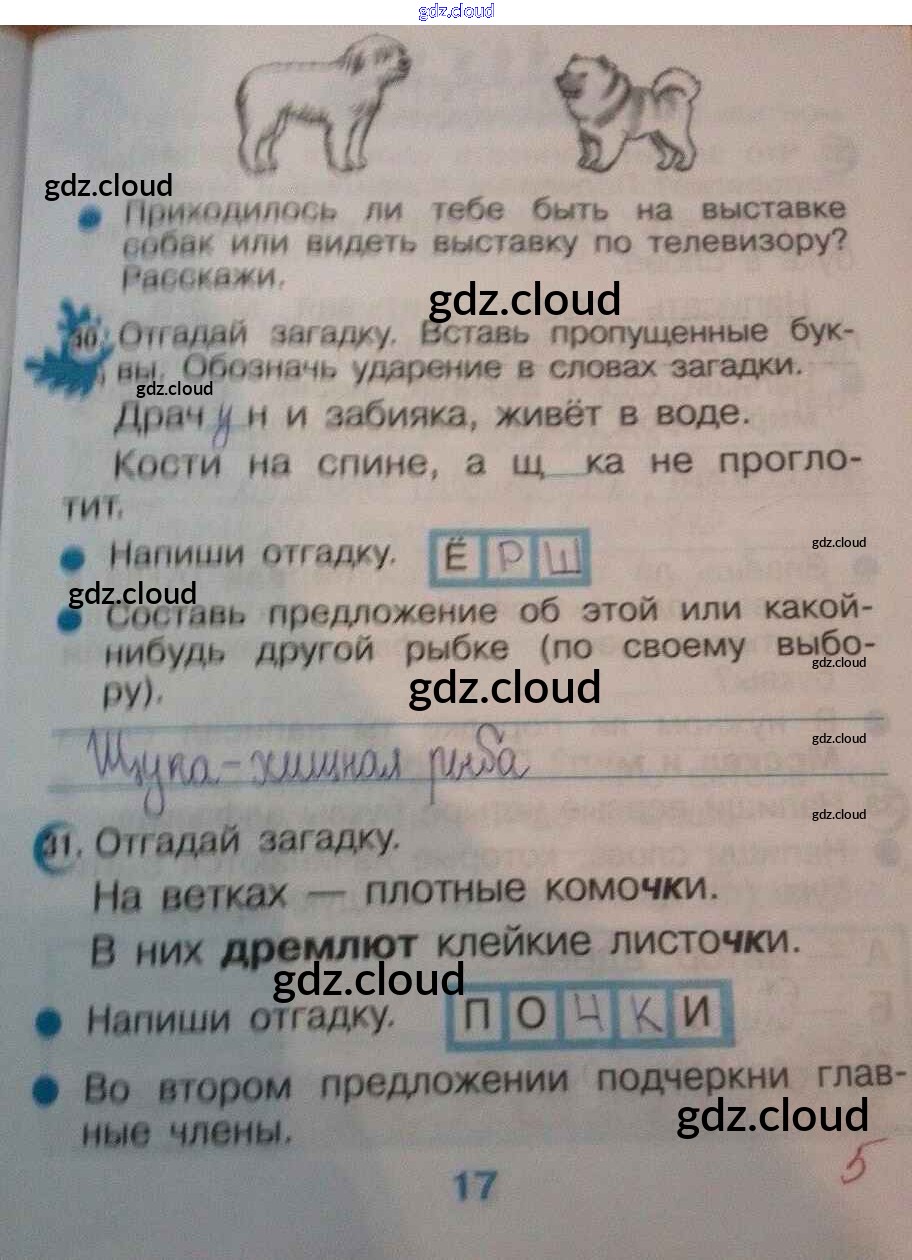 gdz.cloud
gdz.cloud
Приходилось ли тебе быть на выставке
собак или видеть выставку по телевизору?
Расскажи.
gdz.cloud
30. Отгадай загадку. Вставь пропущенные бук-
вы. Обозначь ударение в словах загадки.
gdz.cloud
Драч у н и забияка, живёт в воде.
Кости на спине, а щ__ка не прогло-
тит.
Напиши отгадку. Ё Р Ш
gdz.cloud
gdz.cloud
Составь предложение об этой или какой-
нибудь другой рыбке (по своему выбо-
ру).
gdz.cloud
gdz.cloud
gdz.cloud
Щука - хищная рыба
gdz.cloud
31. Отгадай загадку.
На ветках — плотные комочки.
В них дремлют клейкие листочки.
gdz.cloud
Напиши отгадку. П О Ч К И
Во втором предложении подчеркни глав-
ные члены.
gdz.cloud
5
17